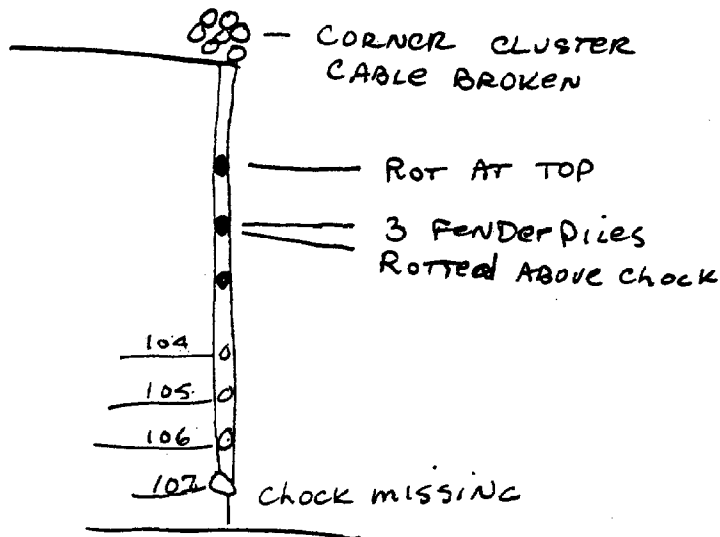 CORNER CLUSTER
CABLE BROKEN
ROT AT TOP
3 FENDER PILES
ROTTED ABOVE CHOCK
104
105
106
107 CHOCK MISSING